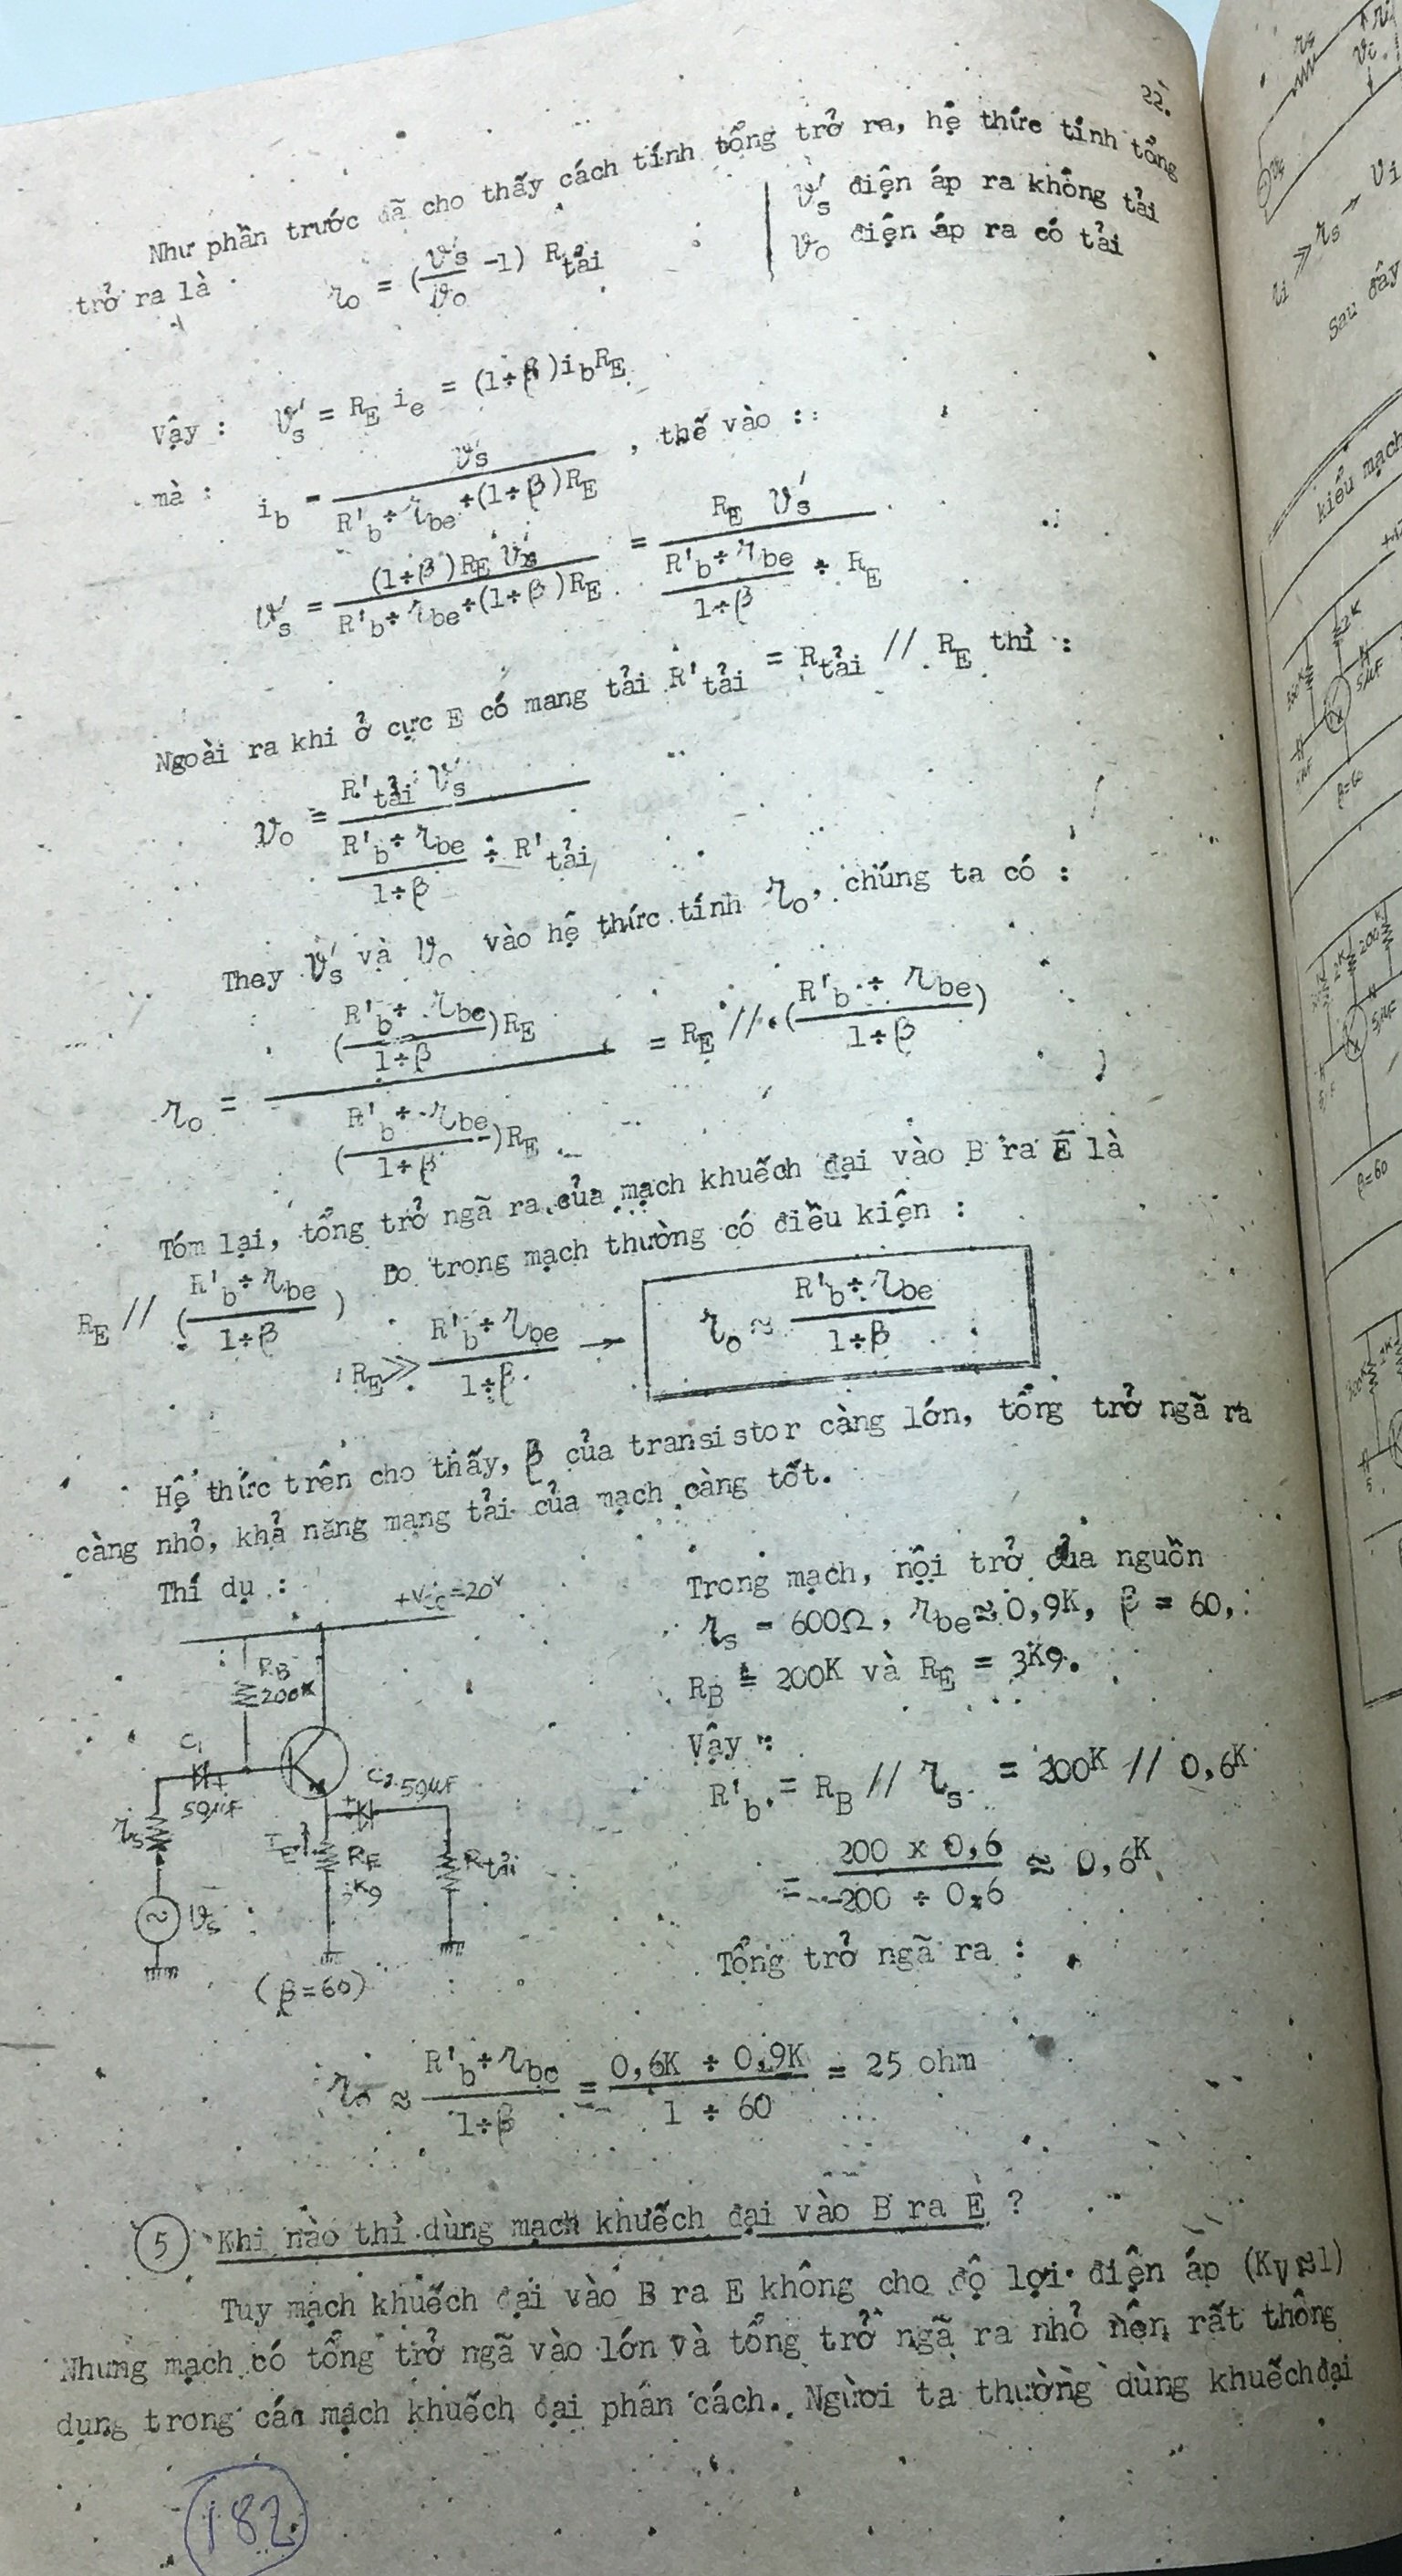 22.
Như phần trước đã cho thấy cách tính tổng trở ra, hệ thức tính tổng
trở ra là : r_o = (v's / v_o -1) R_tải
v's điện áp ra không tải
v_o điện áp ra có tải
Vậy : v's = R_E i_e = (1÷β)i_b R_E
mà : i_b = v's / (R'_b ÷ r_be ÷(1÷β)R_E) , thế vào :
v's = (1÷β)R_E v's / (R'_b ÷ r_be ÷(1÷β)R_E) = R_E v's / ((R'_b ÷ r_be)/(1÷β) ÷ R_E)
Ngoài ra khi ở cực E có mang tải R'_tải = R_tải // R_E thì :
v_o = R'_tải v's / ((R'_b ÷ r_be)/(1÷β) ÷ R'_tải)
They v's và v_o vào hệ thức tính r_o, chúng ta có :
r_o = ((R'_b ÷ r_be)/(1÷β))R_E / ((R'_b ÷ r_be)/(1÷β))R_E = R_E // ((R'_b ÷ r_be)/(1÷β))
Tóm lại, tổng trở ngã ra của mạch khuếch đại vào B ra E là
R_E // ((R'_b ÷ r_be)/(1÷β)) Do trong mạch thường có điều kiện :
R_E ≫ (R'_b ÷ r_be)/(1÷β) → r_o ≈ (R'_b ÷ r_be)/(1÷β)
Hệ thức trên cho thấy, β của transistor càng lớn, tổng trở ngã ra
càng nhỏ, khả năng mang tải của mạch càng tốt.
Thí dụ :
+Vcc=20V
R_B
200K
C1
50µF
C2 50µF
r_s
I_E
R_E
3K9
R_tải
v_s
(β=60)
Trong mạch, nội trở của nguồn
r_s = 600Ω, r_be≈0,9K, β = 60,
R_B = 200K và R_E = 3K9.
Vậy :
R'_b = R_B // r_s = 200K // 0,6K
= (200 x 0,6)/(200 ÷ 0,6) ≈ 0,6K
Tổng trở ngã ra :
r_o ≈ (R'_b÷r_be)/(1÷β) = (0,6K ÷ 0,9K)/(1 ÷ 60) = 25 ohm
5 Khi nào thì dùng mạch khuếch đại vào B ra E ?
Tuy mạch khuếch đại vào B ra E không cho độ lợi điện áp (Kv≈1)
Nhưng mạch có tổng trở ngã vào lớn và tổng trở ngã ra nhỏ nên rất thông
dụng trong các mạch khuếch đại phân cách. Người ta thường dùng khuếch đại
182
r_s
v_i
r_i ≫ r_s → v_i
Sau đây
kiểu mạch
2K
5µF
β=60
2K
200K
5µF
β=60